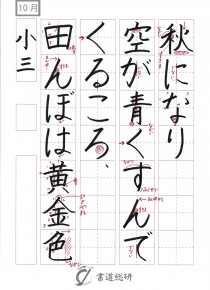 10月
秋になり
空が青くすんで
くるころ、
田んぼは黄金色
小三
書道総研